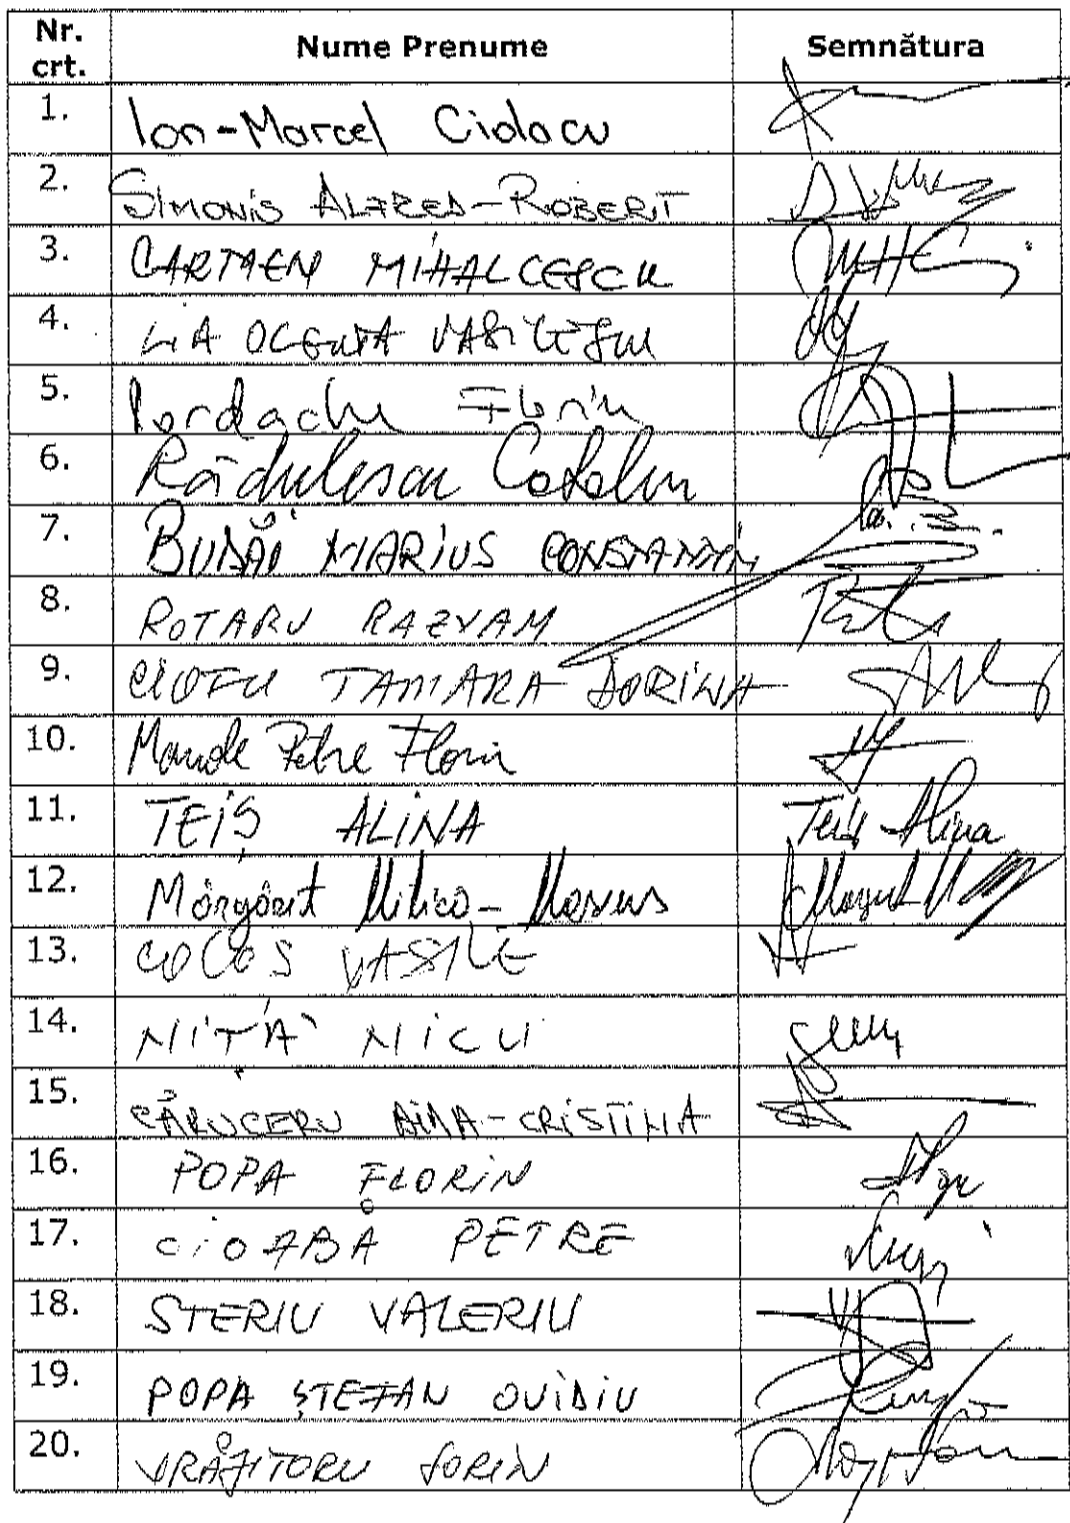 Nr. crt. Nume Prenume Semnătura
1. Ion-Marcel Ciolacu
2. SIMONIS ALFRED-ROBERT
3. CARMEN MIHALCESCU
4. LIA OLGUȚA VASILESCU
5. Iordache Florin
6. Rădulescu Cătălin
7. BUDĂI MARIUS CONSTANTIN
8. ROTARU RAZVAN
9. CIOFU TAMARA DORINA
10. Manole Petre Florin
11. TEIȘ ALINA Teiș Alina
12. Mărgărit Mitică-Marius
13. COCOȘ VASILE
14. NIȚĂ NICU
15. CĂRUCERU AIDA-CRISTINA
16. POPA FLORIN
17. CIOABĂ PETRE
18. STERIU VALERIU
19. POPA ȘTEFAN OVIDIU
20. VRĂJITORU SORIN